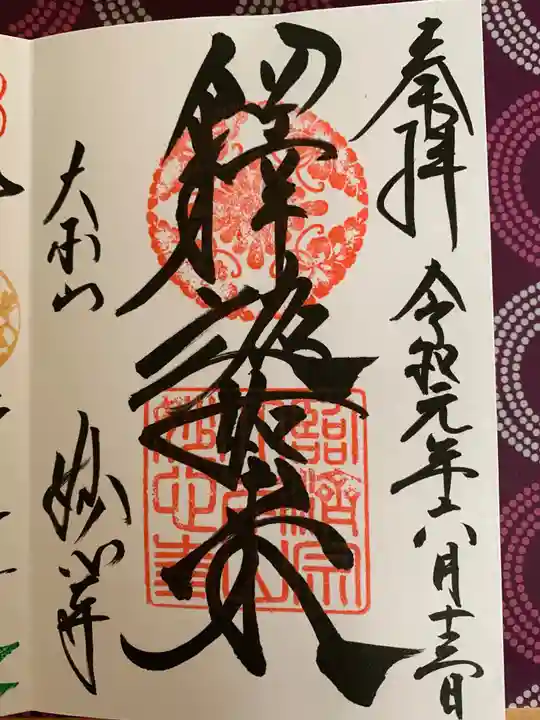 奉拝
令和元年八月十三日
釋迦如来
臨済宗
大本山
妙心寺